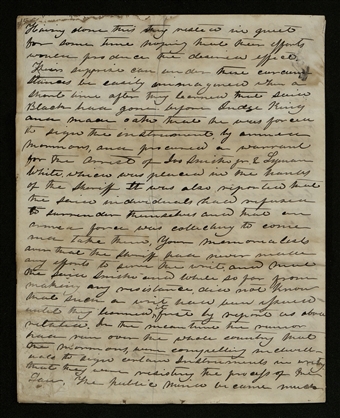 Having done this they rested in quiet
for some time hoping that their efforts
would produce the desired effect.
Their surprise can under these circum
stances be easily immagined when a
short time after they learned that said
Black had gone before Judge King
and made oath that he was forced
to sign the instrument by armed
mormons, and procured a warrant
for the arrest of Jos Smith jr & Lyman
White, which was placed in the hands
of the Sheriff It was also reported that
the said individuals had refused
to surrender themselves and that an
armed force was collecting to come
and take them. Your memorialists
aver that the Sheriff had never made
any effort to serve the writ, and that
the said Smith and White so far from
making any resistance did not know
that such a writ had been issued
until they learned it first by report as above
related. In the mean time the rumor
had run over the whole country that
the mormons were compelling individ
uals to sign certain instruments in writing
that they were resisting the process of the
Law. The public mind became much